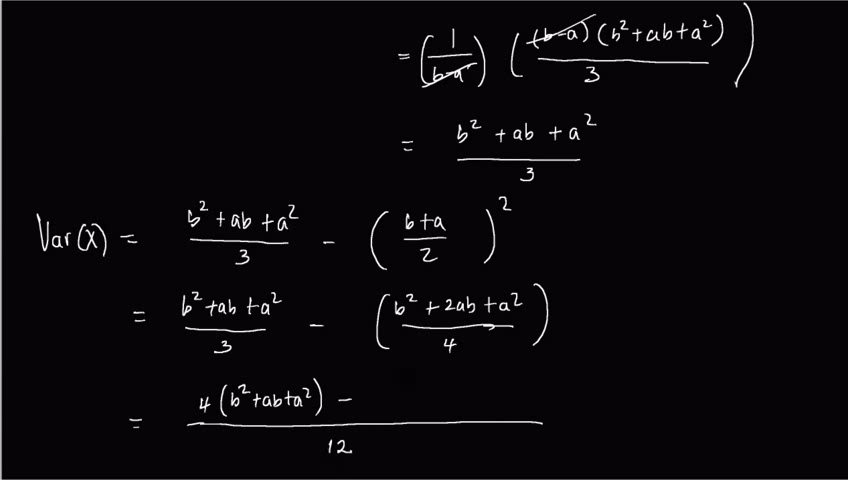 = (1/(b-a)) ((b-a)(b²+ab+a²)/3)
= (b²+ab+a²)/3
Var(X) = (b²+ab+a²)/3 - ((b+a)/2)²
= (b²+ab+a²)/3 - ((b²+2ab+a²)/4)
= (4(b²+ab+a²) - )/12